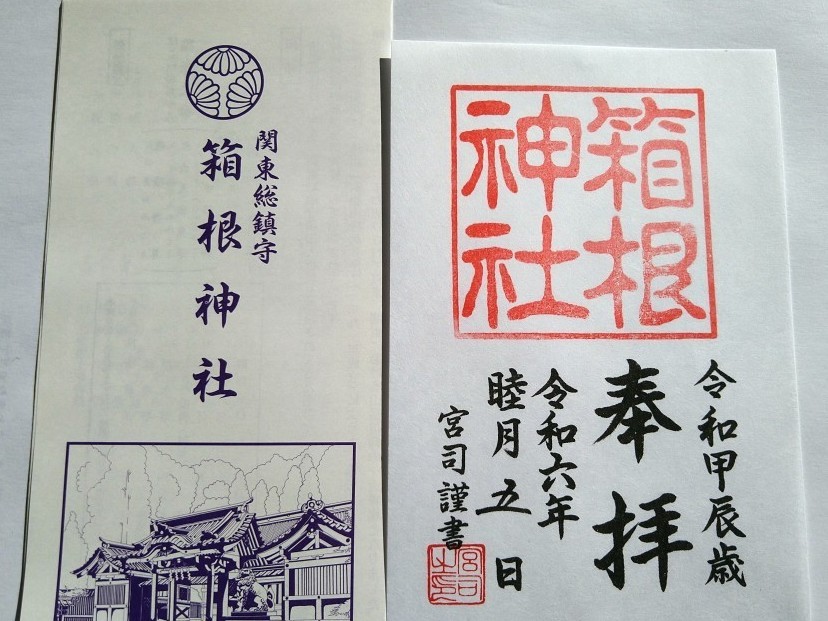 関東総鎮守
箱根神社
箱根
神社
令和甲辰歳
奉拝
令和六年
睦月五日
宮司謹書